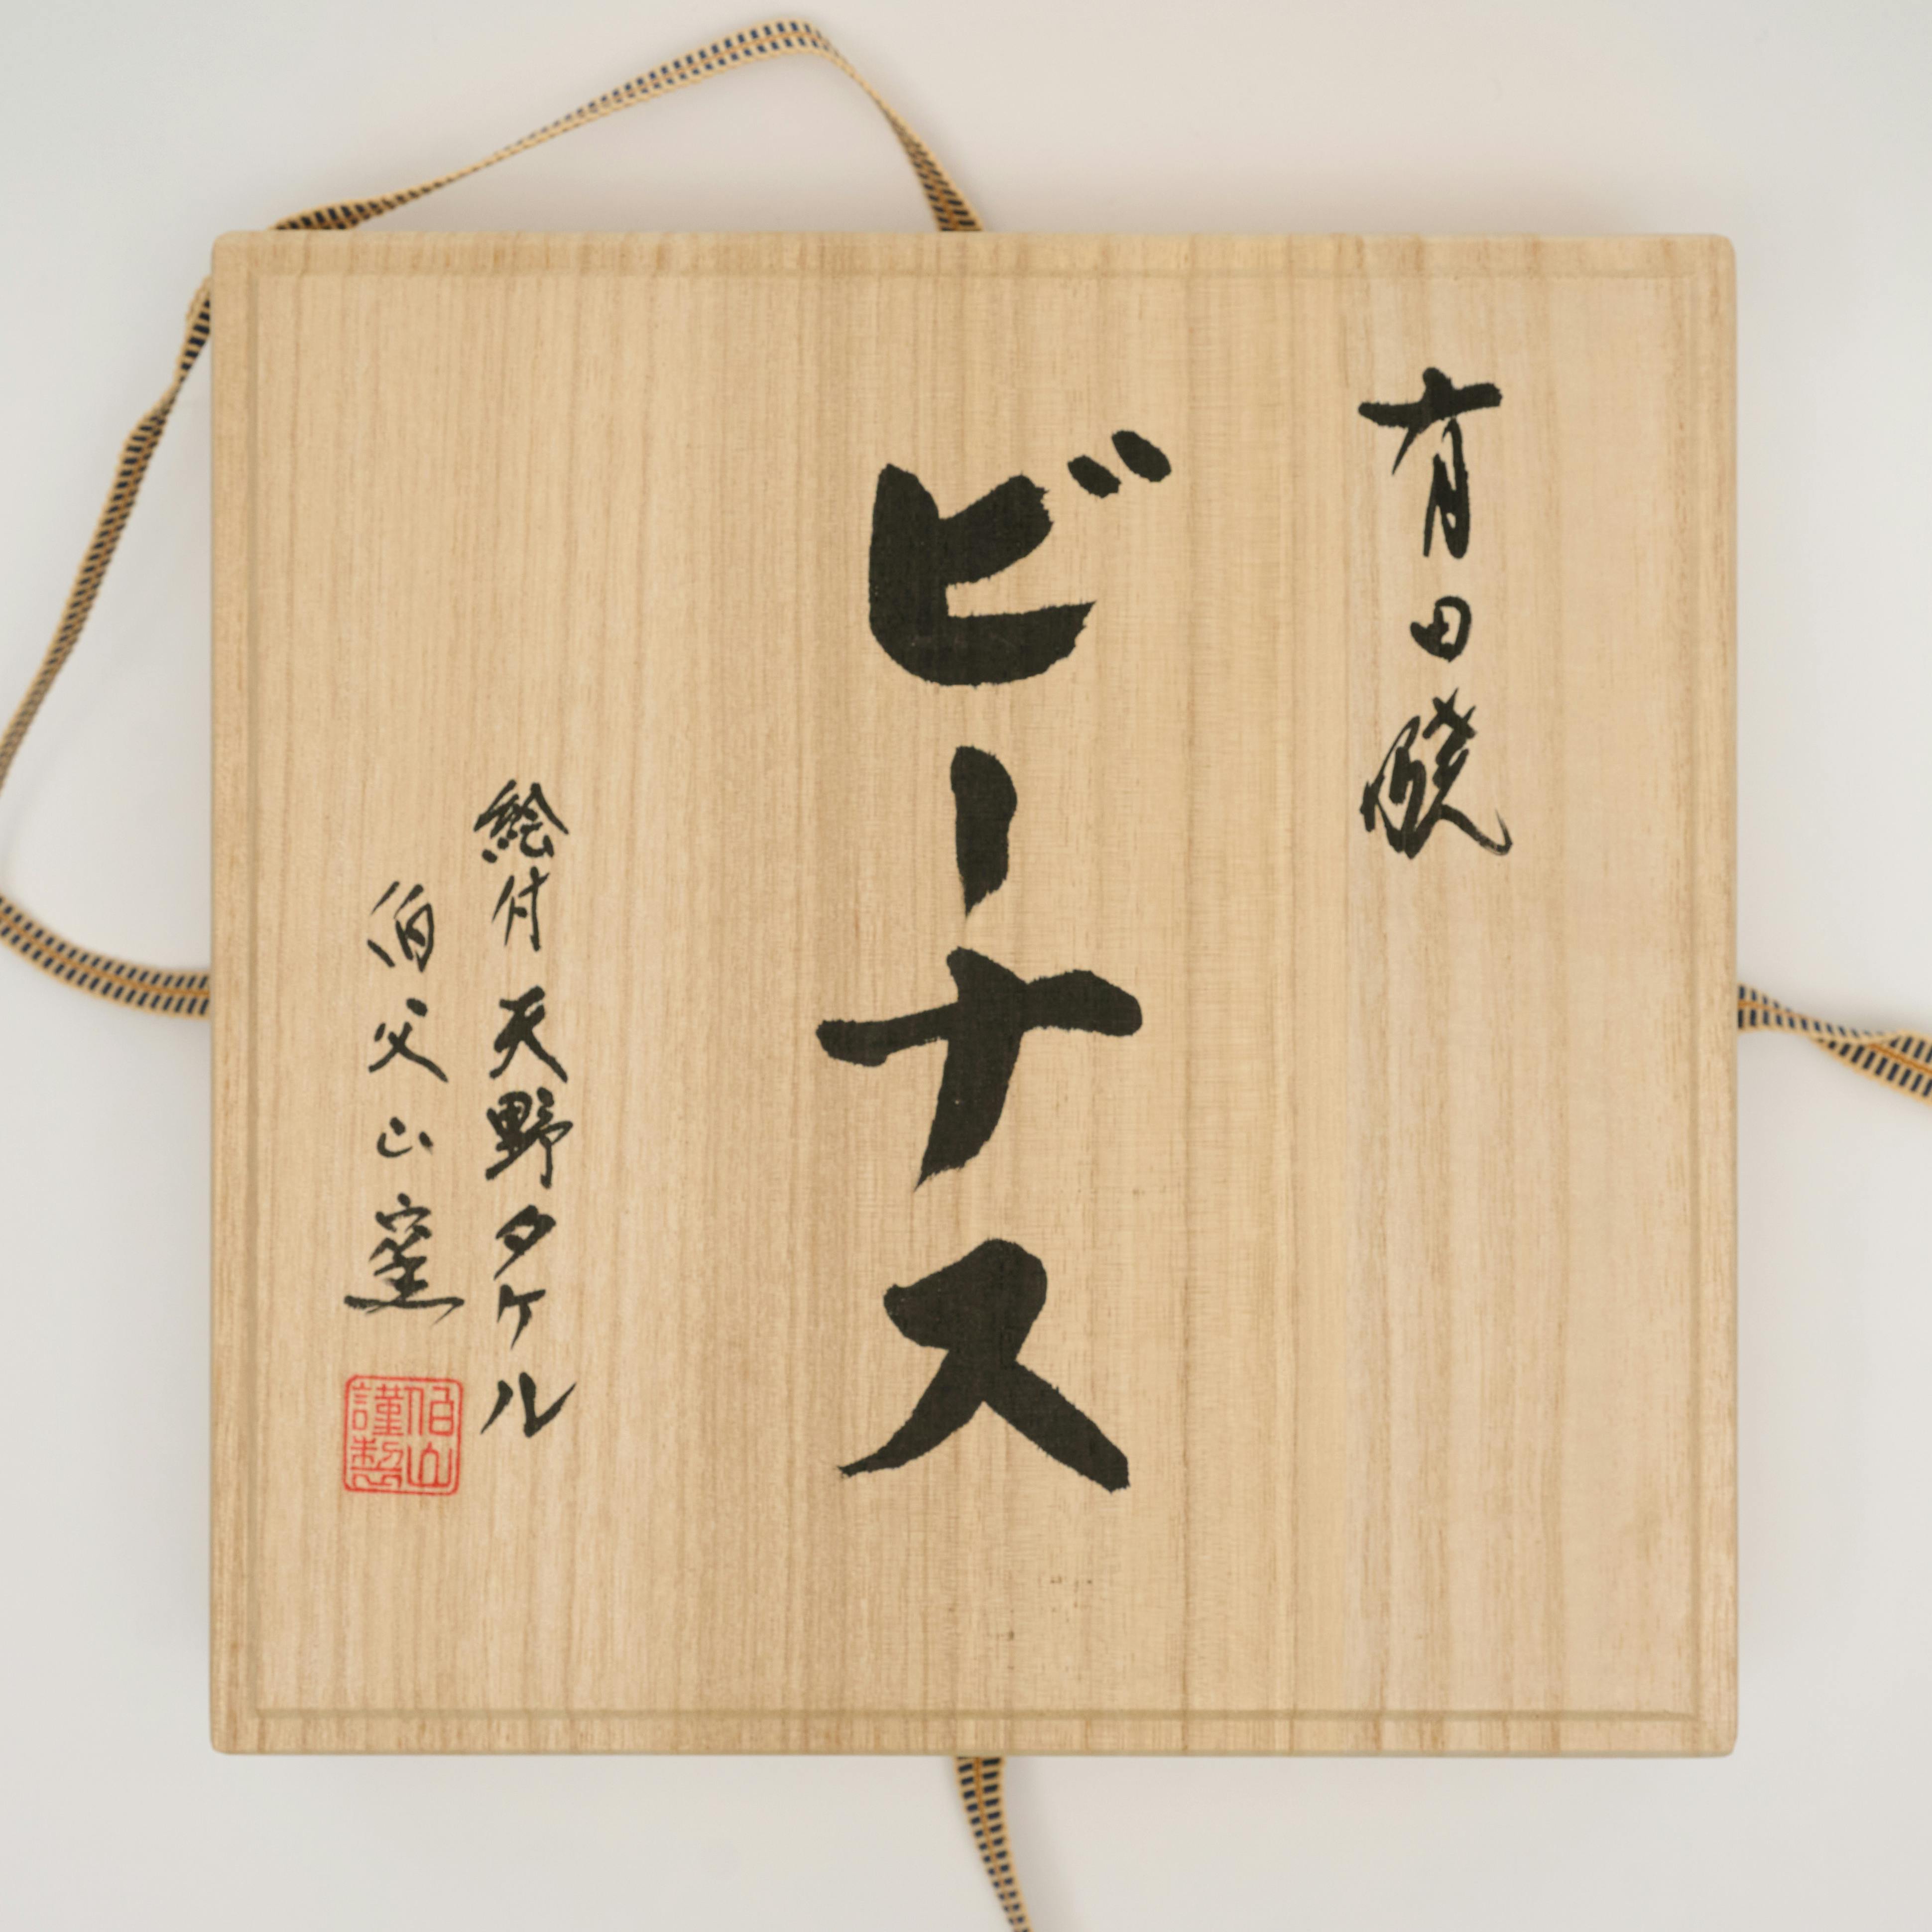 有田焼
ビーナス
絵付 天野タケル
伯父山窯
伯山
謹製